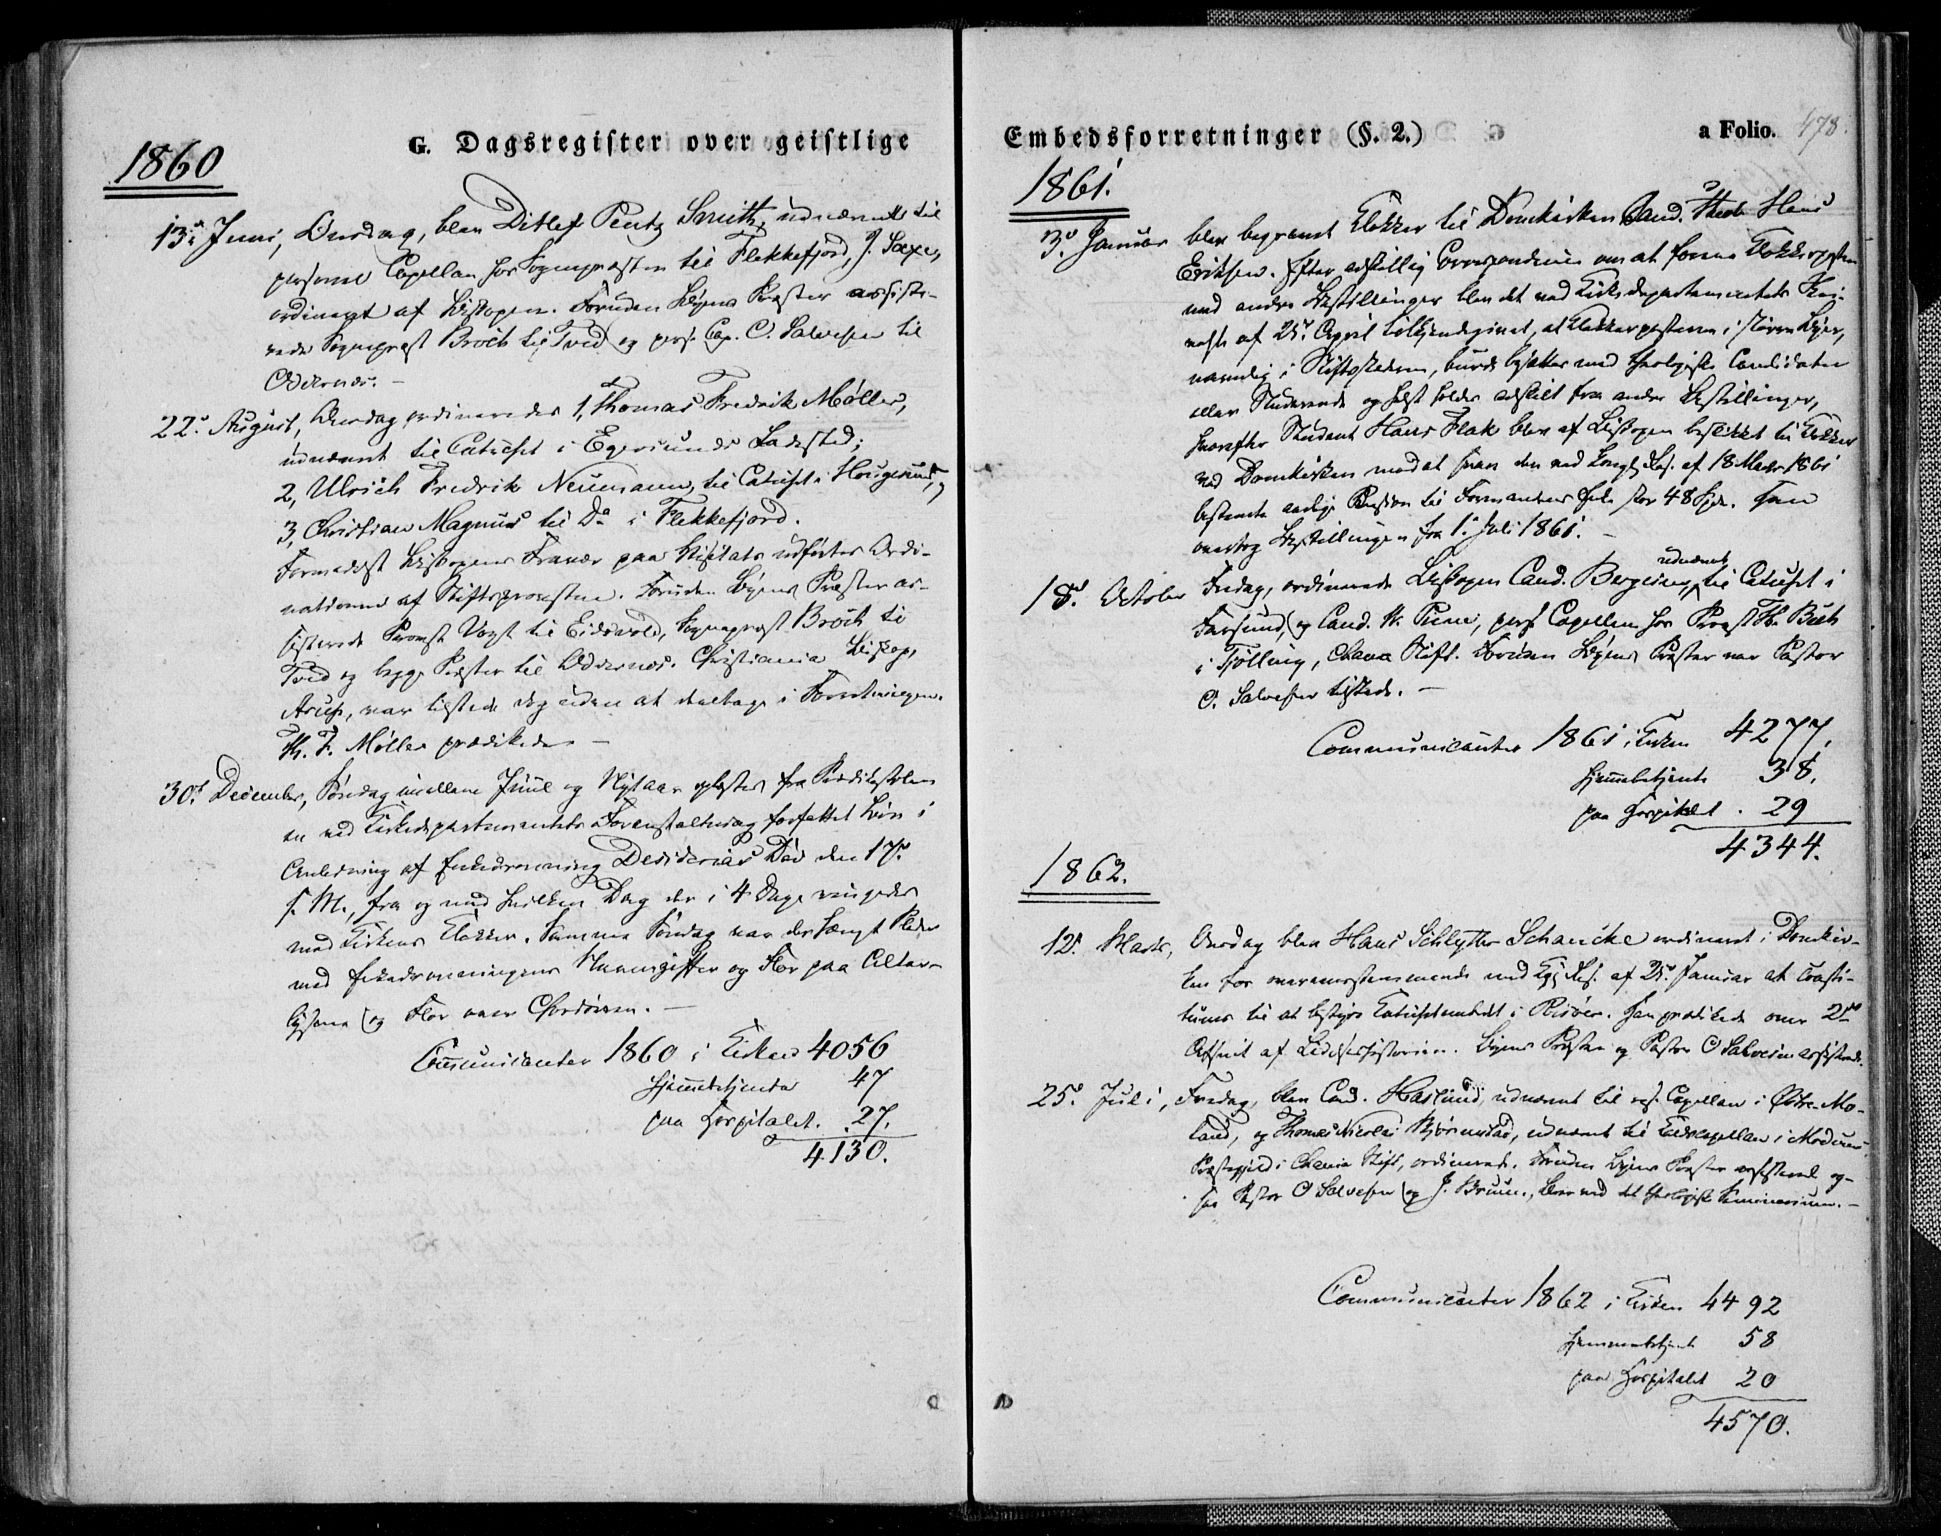 G. Dagsregister over geistlige
1860
13de Juni, Onsdag, blev Ditlef Pentz Smith, udnævnt til
personel Capellan hos Sognepræsten til Flekkefjord, J. Saxe,
ordineret af Biskopen. Foruden Byens Præster assiste-
rede Sognepræst Broch til Tveid og pers. Cap. O. Salvesen til
Oddernæs. –
22de August, Onsdag ordineredes 1, Thomas Fredrik Møller,
udnævnt til Catechet i Egersunds Ladested;
2, Ulrich Fredrik Neumann, til Catechet i Hougesund, og
3, Christian Magnus til Do i Flekkefjord.
Formedelst Biskopens Fravær paa Visitats udførtes Ordi-
nationen af Stiftsprovsten. Foruden Byens Præster as-
sisterede Provst Vogt til Eidsvold, Sognepræst Broch til
Tveid og begge Præster til Oddernæs. Christiania Biskop,
Arup, var tilstede dog uden at deeltage i Forretningen.
Th. F. Møller prædikede –
30te December, Søndag imellem Juul og Nytaar oplæstes fra Prædikestolen
en ved Kirkedepartementets Foranstaltning forfattet Bøn i
Anledning af Enkedronning Desiderias Død den 17de
s. M., fra og med hvilken Dag der i 4 Dage ringedes
med Kirkens Klokker. Samme Søndag var der hængt Plader
med Enkedronningens Navneziffer og Flor paa Altar-
lysene og Flor over Chordøren. –
Communicanter 1860 i Kirken 4056
Hjemmebetjente 47
paa Hospitalet . 27.
4130.
Embedsforretninger (§. 2.)
a Folio. 478.
1861.
3de Januar blev begravet Klokker til Domkirken Cand. Theol. Hans
Eriksen. Efter adskillig Correspondence om at forene Klokkerposten
med andre Bestillinger blev det ved Kirkedepartementets Skri-
velse af 25de April tilkjendegivet, at Klokkerposterne i større Byer,
navnlig i Stiftsstæderne, burde besættes med theologiske Candidater
eller Studerende og helst holdes adskilt fra andre Bestillinger,
hvorefter Student Hans Flak blev af Biskopen beskikket til Klokker
ved Domkirken mod at svare den ved Kongl. Res. af 18 Marts 1861
bestemte aarlige Pension til Formandens Enke stor 48 Spd. Han
overtog Bestillingen fra 1ste Juli 1861. –
18de October Fredag, ordinerede Biskopen Cand. Bergersen, udnævnt til Catechet i
Farsund, og Cand. Pune, pers. Capellan hos Provst Th. Buch
i Tjølling, Chania Stift. Foruden Byens Præster var Pastor
O. Salvesen tilstede. –
Communicanter 1861 i Kirken 4277.
Hjemmebetjente 38.
paa Hospitalet . 29
4344.
1862.
12te Marts, Onsdag blev Hans Schlytter Schancke ordineret i Domkir-
ken for overensstemmende med Kgl. Res. af 25de Januar at consti-
tueres til at bestyre Catechetembedet i Risøer. Han prædikede over 2det
Afsnit af Lidelseshistorien. Byens Præster og Pastor O Salvesen assisterede.
25de Juli, Fredag, blev Cand. Haslund, udnævnt til res. Capellan i Østre-Mo-
land, og Thomas Nicolai Bjørnstad, udnævnt til Capellan i Modums
Præstegjeld i Chania Stift, ordinerede. Foruden Byens Præster assisterede og-
saa Pastor O Salvesen og J. Bruun, Lærer ved det theologiske Seminarium. –
Communicanter 1862 i Kirken 4492
Hjemmebetjent 58
paa Hospitalet 20
4570.